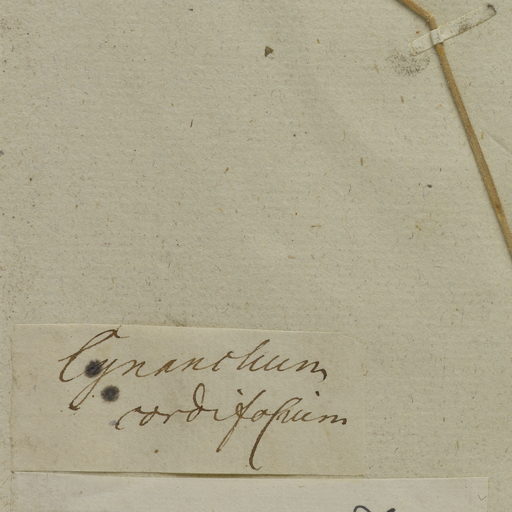 Cynanchum
cordifolium